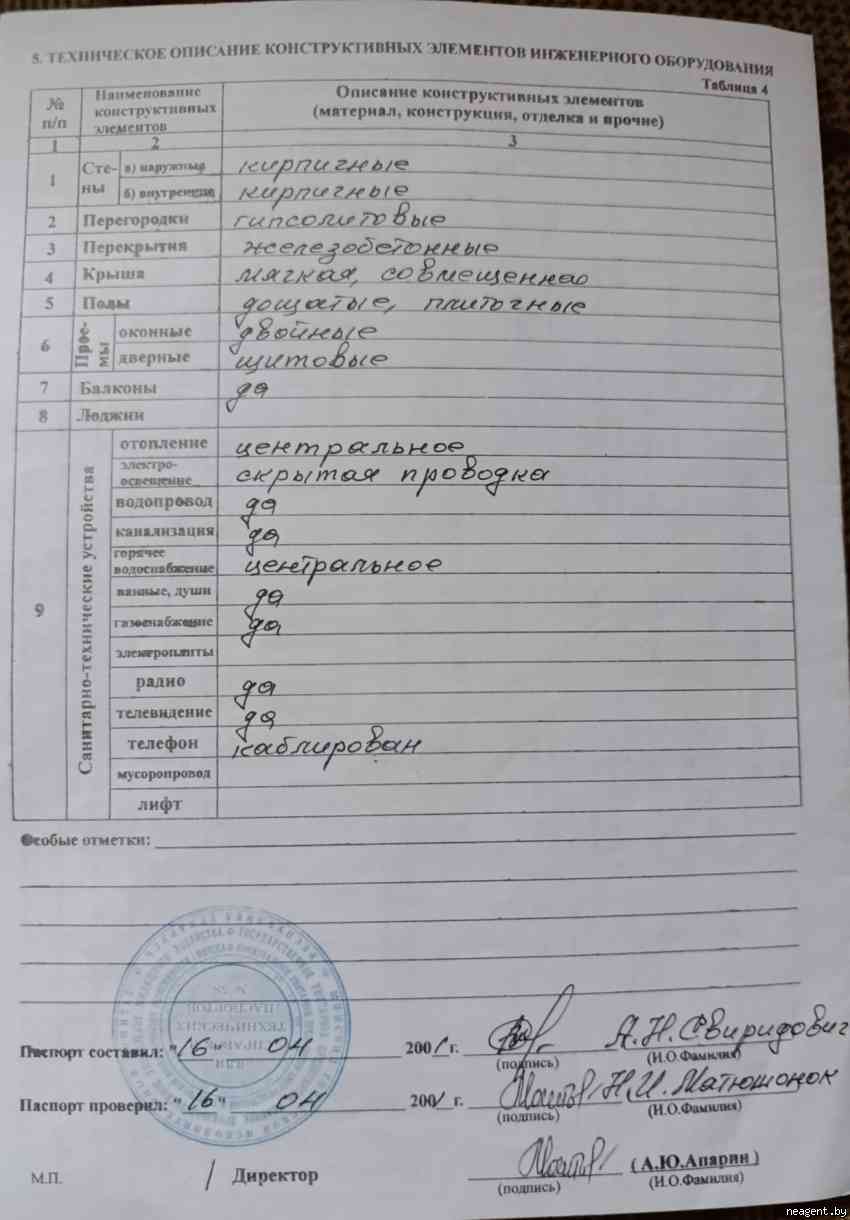 5. ТЕХНИЧЕСКОЕ ОПИСАНИЕ КОНСТРУКТИВНЫХ ЭЛЕМЕНТОВ ИНЖЕНЕРНОГО ОБОРУДОВАНИЯ
Таблица 4
№ п/п Наименование конструктивных элементов Описание конструктивных элементов (материал, конструкция, отделка и прочие)
1 2 3
1 Стены а) наружные кирпичные
б) внутренние кирпичные
2 Перегородки гипсолитовые
3 Перекрытия железобетонные
4 Крыша мягкая, совмещенная
5 Полы дощатые, плиточные
6 Прое-мы оконные двойные
дверные щитовые
7 Балконы да
8 Лоджии
9 Санитарно-технические устройства отопление центральное
электро-освещение скрытая проводка
водопровод да
канализация да
горячее водоснабжение центральное
ванные, души да
газоснабжение да
электроплиты
радио да
телевидение да
телефон каблирован
мусоропровод
лифт
Особые отметки:
Паспорт составил: "16" 04 2001 г. А.Н.Свиридович
(подпись) (И.О.Фамилия)
Паспорт проверил: "16" 04 2001 г. Н.И.Матюшонок
(подпись) (И.О.Фамилия)
М.П. / Директор (А.Ю.Апарин)
(подпись) (И.О.Фамилия)
neagent.by